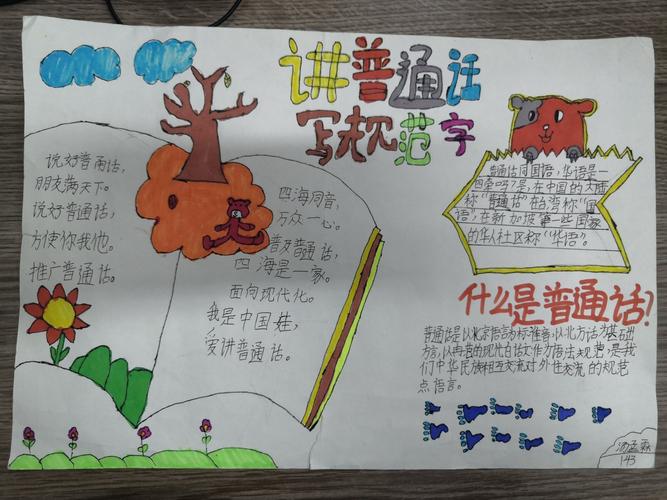 讲普通话
写规范字
说好普通话，
朋友满天下。
说好普通话，
方便你我他。
推广普通话。
四海同音，
万众一心。
普及普通话，
四海是一家。
面向现代化。
我是中国娃，
爱讲普通话。
普通话同国语，华语是一
回事吗？是，在中国的大陆
称“普通话”在台湾称“国
语”，在新加坡等一些国家
的华人社区称“华语”。
什么是普通话？
普通话是以北京语音为标准音，以北方话为基础
方言，以典范的现代白话文作为语法规范，是我
们中华民族相互交流对外往交流的规范
点语言。
汤孟霖
143